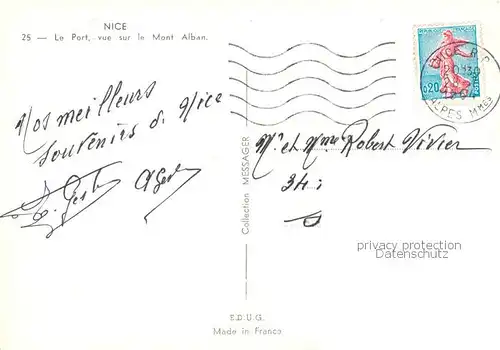 NICE
25 - Le Port, vue sur le Mont Alban.
Nos meilleurs
souvenirs de Nice
Collection MESSAGER
NICE R.P
20H30
ALPES MMES
0,20
Mr et Mme Robert Vivier
34
privacy protection
watermark AKH
E.D.U.G.
Made in France